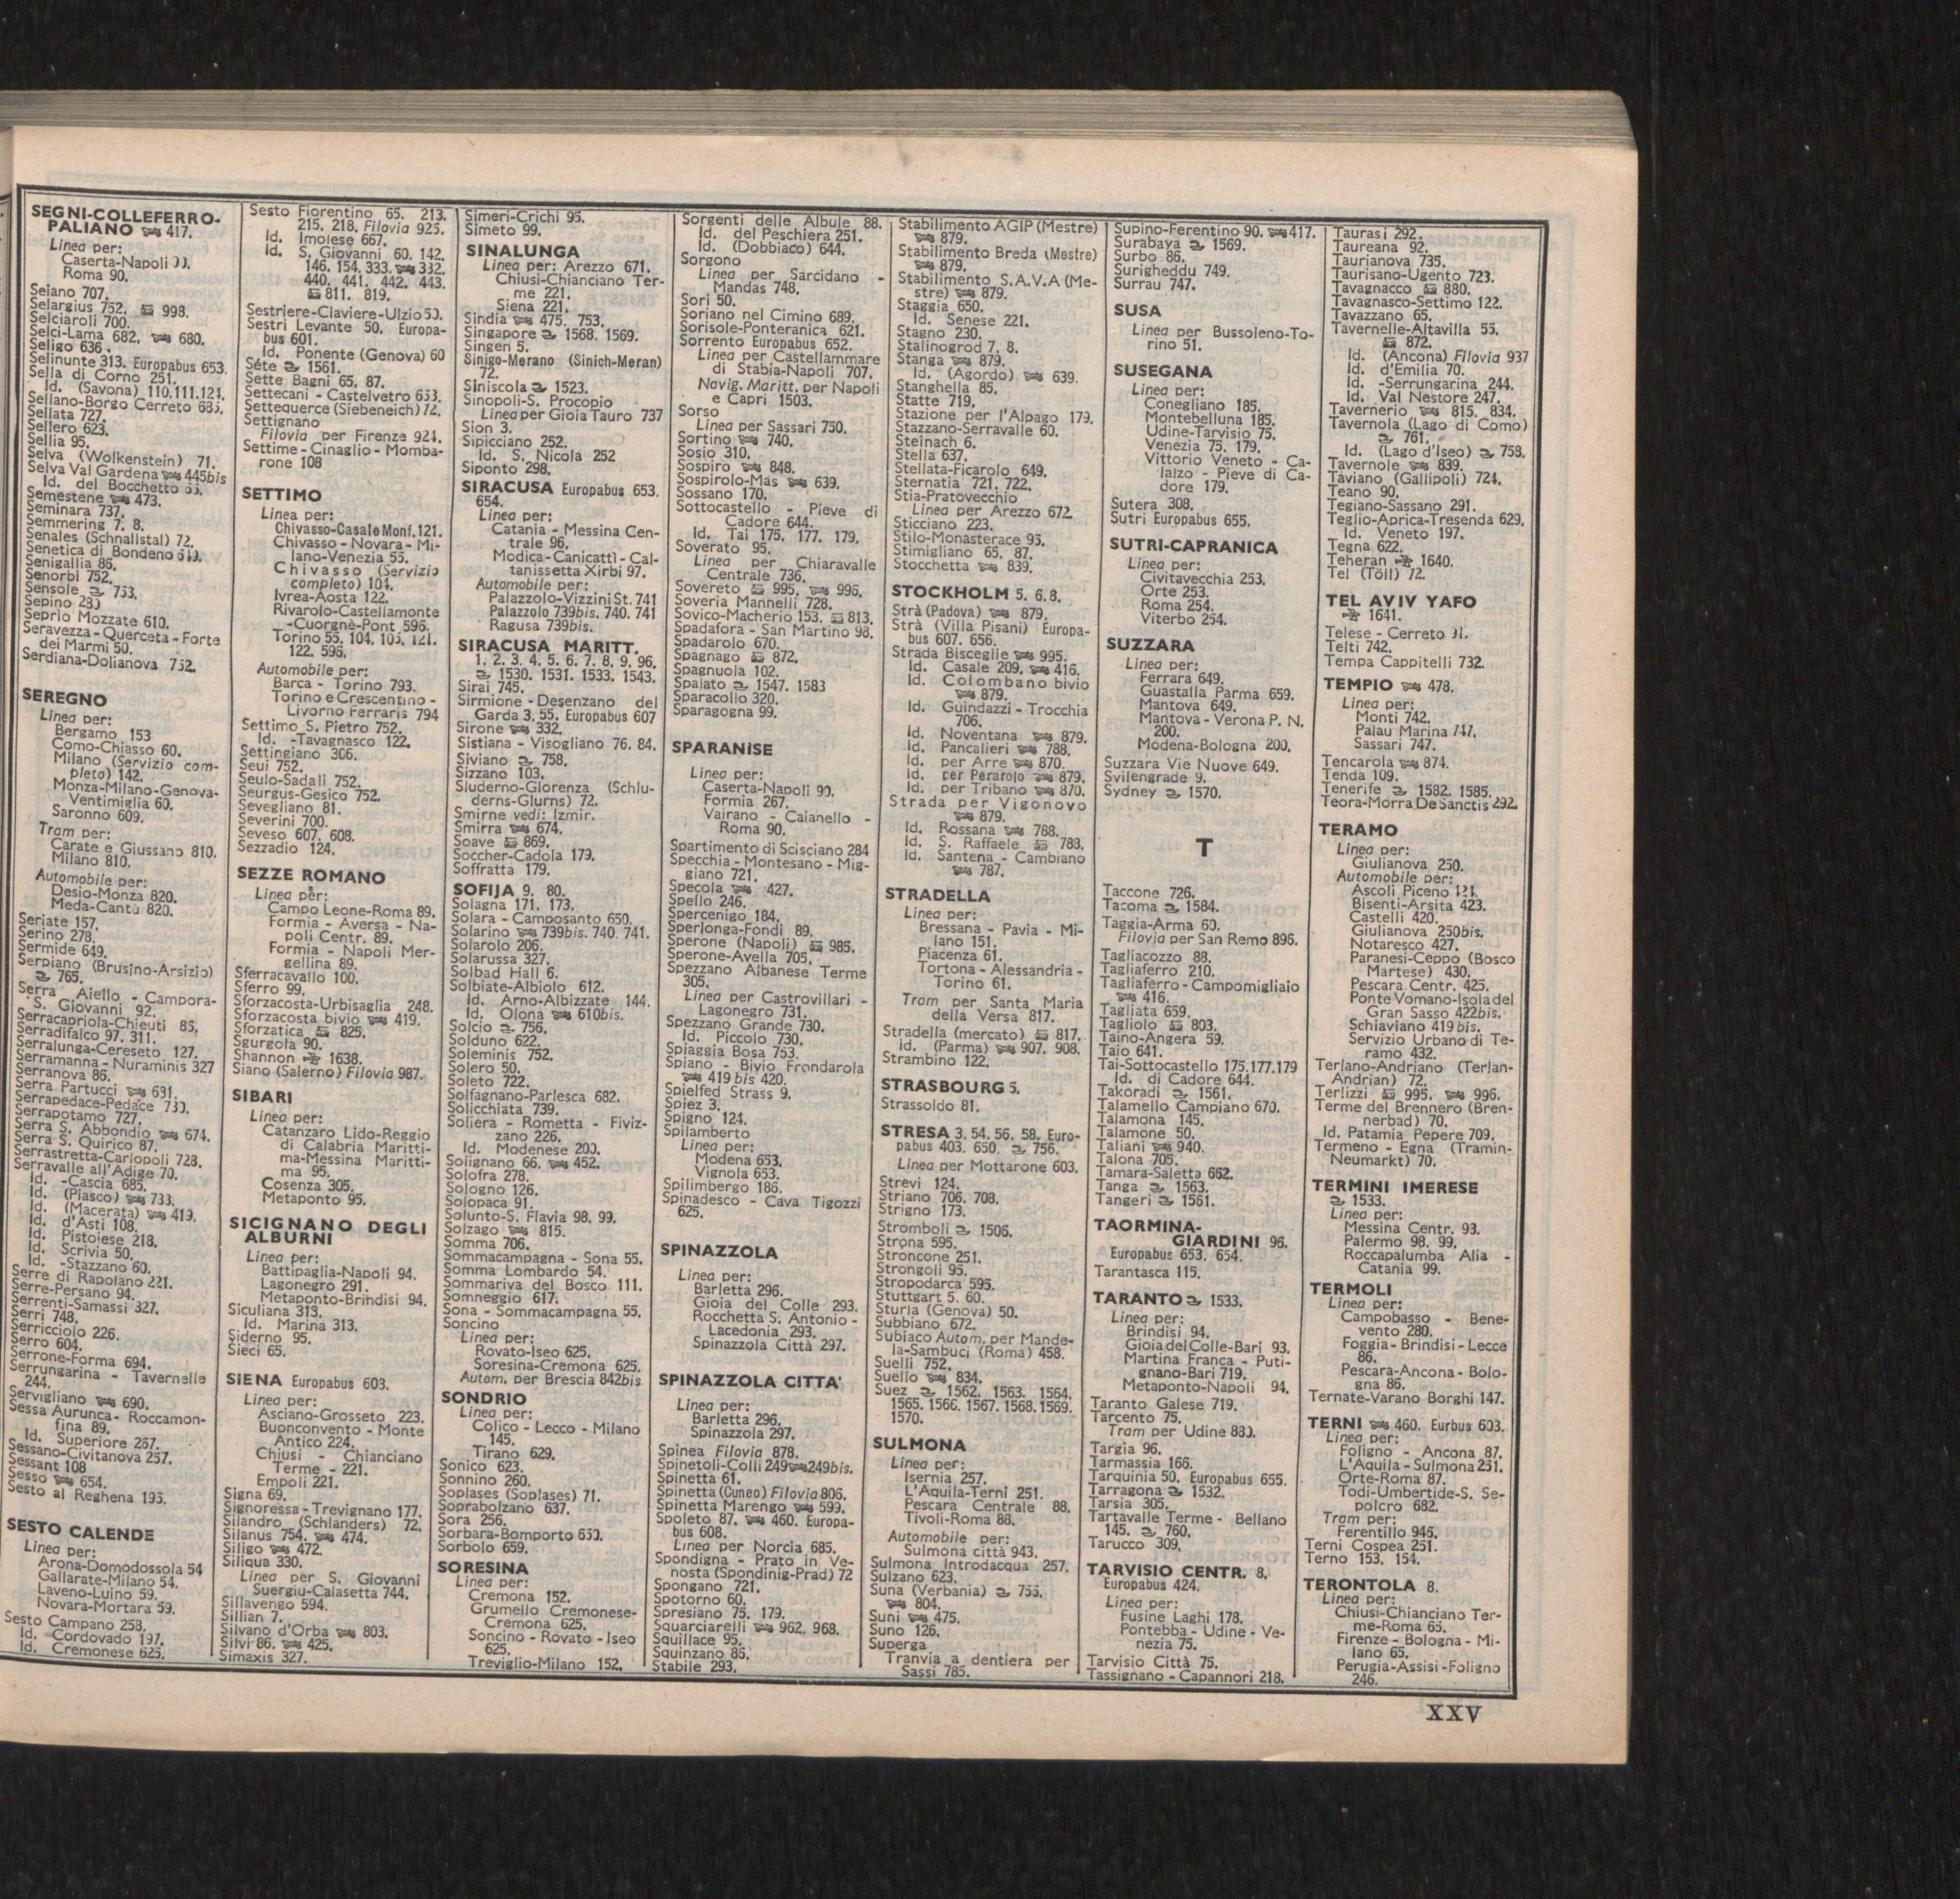 SEGNI-COLLEFERRO-
PALIANO 417.
Linea per:
Caserta-Napoli
Roma 90.
Seiano 707.
Selargius 752. 998.
Selciaroli 700.
Selci-Lama 682, 680.
Seligo 636.
Selinunte 313. Europabus 653.
Sella di Corno 251.
Id. (Savona) 110.111.124.
Sellano-Borgo Cerreto 685.
Sellata 727.
Sellero 623.
Sellia 95.
Selva (Wolkenstein) 71.
Selva Val Gardena 445bis
Id. del Bocchetto
Semestene 473.
Seminara 737.
Semmering 7. 8.
Senales (Schnallstal) 72.
Senetica di Bondeno
Senigallia 86.
Senorbi 752.
Sensole 753.
Sepino
Seprio Mozzate 610.
Seravezza - Querceta - Forte
dei Marmi 50.
Serdiana-Dolianova 752.
SEREGNO
Linea per:
Bergamo 153
Como-Chiasso 60.
Milano (Servizio com-
pleto) 142.
Monza-Milano-Genova-
Ventimiglia 60.
Saronno 609.
Tram per:
Carate e Giussano 810.
Milano 810.
Automobile per:
Desio-Monza 820.
Meda-Cantù 820.
Seriate 157.
Serino 278.
Sermide 649.
Serpiano (Brusino-Arsizio)
765.
Serra Aiello - Campora-
S. Giovanni 92.
Serracapriola-Chieuti 85.
Serradifalco 97. 311.
Serralunga-Cereseto 127.
Serramanna - Nuraminis 327
Serranova 86.
Serra Partucci 631.
Serrapedace-Pedace 730.
Serrapotamo 727.
Serra S. Abbondio 674.
Serra S. Quirico 87.
Serrastretta-Carlopoli 728.
Serravalle all'Adige 70.
Id. -Cascia 685.
Id. (Piasco) 733.
Id. (Macerata) 419.
Id. d'Asti 108.
Id. Pistoiese 218.
Id. Scrivia 50.
Id. -Stazzano 60.
Serre di Rapolano 221.
Serre-Persano 94.
Serrenti-Samassi 327.
Serri 748.
Serricciolo 226.
Serro 604.
Serrone-Forma 694.
Serrungarina - Tavernelle
244.
Servigliano 690.
Sessa Aurunca - Roccamon-
fina 89.
Id. Superiore 267.
Sessano-Civitanova 257.
Sessant 108
Sesso 654.
Sesto al Reghena 195.
SESTO CALENDE
Linea per:
Arona-Domodossola 54
Gallarate-Milano 54.
Laveno-Luino 59.
Novara-Mortara 59.
Sesto Campano 258.
Id. Cordovado 197.
Id. Cremonese 625.
Sesto Fiorentino 65. 213.
215. 218. Filovia 925.
Id. Imolese 667.
Id. S. Giovanni 60. 142.
146. 154. 333. 332.
440. 441. 442. 443.
811. 819.
Sestriere-Claviere-Ulzio 50.
Sestri Levante 50. Europa-
bus 601.
Id. Ponente (Genova) 60
Séte 1561.
Sette Bagni 65. 87.
Settecani - Castelvetro 653.
Settequerce (Siebeneich) 72.
Settignano
Filovia per Firenze 924.
Settime - Cinaglio - Momba-
rone 108
SETTIMO
Linea per:
Chivasso-Casale Monf. 121.
Chivasso - Novara - Mi-
lano-Venezia 55.
Chivasso (Servizio
completo) 104.
Ivrea-Aosta 122.
Rivarolo-Castellamonte
-Cuorgnè-Pont 596.
Torino 55. 104. 105. 121.
122. 596.
Automobile per:
Barca - Torino 793.
Torino e Crescentino -
Livorno Ferraris 794
Settimo S. Pietro 752.
Id. -Tavagnasco 122.
Settingiano 306.
Seui 752.
Seulo-Sadali 752.
Seurgus-Gesico 752.
Sevegliano 81.
Severini 700.
Seveso 607. 608.
Sezzadio 124.
SEZZE ROMANO
Linea per:
Campo Leone-Roma 89.
Formia - Aversa - Na-
poli Centr. 89.
Formia - Napoli Mer-
gellina 89.
Sferracavallo 100.
Sferro 99.
Sforzacosta-Urbisaglia 248.
Sforzacosta bivio 419.
Sforzatica 825.
Sgurgola 90.
Shannon 1638.
Siano (Salerno) Filovia 987.
SIBARI
Linea per:
Catanzaro Lido-Reggio
di Calabria Maritti-
ma-Messina Maritti-
ma 95.
Cosenza 305.
Metaponto 95.
SICIGNANO DEGLI
ALBURNI
Linea per:
Battipaglia-Napoli 94.
Lagonegro 291.
Metaponto-Brindisi 94.
Siculiana 313.
Id. Marina 313.
Siderno 95.
Sieci 65.
SIENA Europabus 603.
Linea per:
Asciano-Grosseto 223.
Buonconvento - Monte
Antico 224.
Chiusi - Chianciano
Terme - 221.
Empoli 221.
Signa 69.
Signoressa - Trevignano 177.
Silandro (Schlanders) 72.
Silanus 754. 474.
Siligo 472.
Siliqua 330.
Linea per S. Giovanni
Suergiu-Calasetta 744.
Sillavengo 594.
Sillian 7.
Silvano d'Orba 803.
Silvi 86. 425.
Simaxis 327.
Simeri-Crichi 95.
Simeto 99.
SINALUNGA
Linea per: Arezzo 671.
Chiusi-Chianciano Ter-
me 221.
Siena 221.
Sindia 475. 753.
Singapore 1568. 1569.
Singen 5.
Sinigo-Merano (Sinich-Meran)
72.
Siniscola 1523.
Sinopoli-S. Procopio
Linea per Gioia Tauro 737
Sion 3.
Sipicciano 252.
Id. S. Nicola 252
Siponto 298.
SIRACUSA Europabus 653.
654.
Linea per:
Catania - Messina Cen-
trale 96.
Modica-Canicattì - Cal-
tanissetta Xirbi 97.
Automobile per:
Palazzolo-Vizzini St. 741
Palazzolo 739bis. 740. 741
Ragusa 739bis.
SIRACUSA MARITT.
1. 2. 3. 4. 5. 6. 7. 8. 9. 96.
1530. 1531. 1533. 1543.
Sirai 745.
Sirmione - Desenzano del
Garda 3. 55. Europabus 607
Sirone 332.
Sistiana - Visogliano 76. 84.
Siviano 758.
Sizzano 103.
Sluderno-Glorenza (Schlu-
derns-Glurns) 72.
Smirne vedi: Izmir.
Smirra 674.
Soave 869.
Soccher-Cadola 179.
Soffratta 179.
SOFIJA 9. 80.
Solagna 171. 173.
Solara - Camposanto 650.
Solarino 739bis. 740. 741.
Solarolo 206.
Solarussa 327.
Solbad Hall 6.
Solbiate-Albiolo 612.
Id. Arno-Albizzate 144.
Id. Olona 610bis.
Solcio 756.
Solduno 622.
Soleminis 752.
Solero 50.
Soleto 722.
Solfagnano-Parlesca 682.
Solicchiata 739.
Soliera - Rometta - Fiviz-
zano 226.
Id. Modenese 200.
Solignano 66. 452.
Solofra 278.
Sologno 126.
Solopaca 91.
Solunto-S. Flavia 98. 99.
Solzago 815.
Somma 706.
Sommacampagna - Sona 55.
Somma Lombardo 54.
Sommariva del Bosco 111.
Somneggio 617.
Sona - Sommacampagna 55.
Soncino
Linea per:
Rovato-Iseo 625.
Soresina-Cremona 625.
Autom. per Brescia 842bis
SONDRIO
Linea per:
Colico - Lecco - Milano
145.
Tirano 629.
Sonico 623.
Sonnino 260.
Soplases (Soplases) 71.
Soprabolzano 637.
Sora 256.
Sorbara-Bomporto 650.
Sorbolo 659.
SORESINA
Linea per:
Cremona 152.
Grumello Cremonese-
Cremona 625.
Soncino - Rovato - Iseo
625.
Treviglio-Milano 152.
Sorgenti delle Albule 88.
Id. del Peschiera 251.
Id. (Dobbiaco) 644.
Sorgono
Linea per Sarcidano -
Mandas 748.
Sori 50.
Soriano nel Cimino 689.
Sorisole-Ponteranica 621.
Sorrento Europabus 652.
Linea per Castellammare
di Stabia-Napoli 707.
Navig. Maritt. per Napoli
e Capri 1503.
Sorso
Linea per Sassari 750.
Sortino 740.
Sosio 310.
Sospiro 848.
Sospirolo-Mas 639.
Sossano 170.
Sottocastello - Pieve di
Cadore 644.
Id. Tai 175. 177. 179.
Soverato 95.
Linea per Chiaravalle
Centrale 736.
Sovereto 995. 996.
Soveria Mannelli 728.
Sovico-Macherio 153. 813.
Spadafora - San Martino 98.
Spadarolo 670.
Spagnago 872.
Spagnuola 102.
Spalato 1547. 1583
Sparacollo 320.
Sparagogna 99.
SPARANISE
Linea per:
Caserta-Napoli 90.
Formia 267.
Vairano - Caianello -
Roma 90.
Spartimento di Scisciano 284
Specchia - Montesano - Mig-
giano 721.
Specola 427.
Spello 246.
Spercenigo 184.
Sperlonga-Fondi 89.
Sperone (Napoli) 985.
Sperone-Avella 705.
Spezzano Albanese Terme
305.
Linea per Castrovillari -
Lagonegro 731.
Spezzano Grande 730.
Id. Piccolo 730.
Spiaggia Bosa 753.
Spiano - Bivio Frondarola
419 bis 420.
Spielfed Strass 9.
Spiez 3.
Spigno 124.
Spilamberto
Linea per:
Modena 653.
Vignola 653.
Spilimbergo 186.
Spinadesco - Cava Tigozzi
625.
SPINAZZOLA
Linea per:
Barletta 296.
Gioia del Colle 293.
Rocchetta S. Antonio -
Lacedonia 293.
Spinazzola Città 297.
SPINAZZOLA CITTA'
Linea per:
Barletta 296.
Spinazzola 297.
Spinea Filovia 878.
Spinetoli-Colli 249 249bis.
Spinetta 61.
Spinetta (Cuneo) Filovia 806.
Spinetta Marengo 599.
Spoleto 87. 460. Europa-
bus 608.
Linea per Norcia 685.
Spondigna - Prato in Ve-
nosta (Spondinig-Prad) 72
Spongano 721.
Spotorno 60.
Spresiano 75. 179.
Squarciarelli 962. 968.
Squillace 95.
Squinzano 86.
Stabile 293.
Stabilimento AGIP (Mestre)
879.
Stabilimento Breda (Mestre)
879.
Stabilimento S.A.V.A (Me-
stre) 879.
Staggia 650.
Id. Senese 221.
Stagno 230.
Stalinogrod 7. 8.
Stanga 879.
Id. (Agordo) 639.
Stanghella 85.
Statte 719.
Stazione per l'Alpago 179.
Stazzano-Serravalle 60.
Steinach 6.
Stella 637.
Stellata-Ficarolo 649.
Sternatia 721. 722.
Stia-Pratovecchio
Linea per Arezzo 672.
Sticciano 223.
Stilo-Monasterace 95.
Stimigliano 65. 87.
Stocchetta 839.
STOCKHOLM 5. 6. 8.
Strà (Padova) 879.
Strà (Villa Pisani) Europa-
bus 607. 656.
Strada Bisceglie 995.
Id. Casale 209. 416.
Id. Colombano bivio
879.
Id. Guindazzi - Trocchia
706.
Id. Noventana 879.
Id. Pancalieri 788.
Id. per Arre 870.
Id. per Perarolo 879.
Id. per Tribano 870.
Strada per Vigonovo
879.
Id. Rossana 788.
Id. S. Raffaele 788.
Id. Santena - Cambiano
787.
STRADELLA
Linea per:
Bressana - Pavia - Mi-
lano 151.
Piacenza 61.
Tortona - Alessandria -
Torino 61.
Tram per Santa Maria
della Versa 817.
Stradella (mercato) 817.
Id. (Parma) 907. 908.
Strambino 122.
STRASBOURG 5.
Strassoldo 81.
STRESA 3. 54. 56. 58. Euro-
pabus 403. 650. 756.
Linea per Mottarone 603.
Strevi 124.
Striano 706. 708.
Strigno 173.
Stromboli 1506.
Strona 595.
Stroncone 251.
Strongoli 95.
Stropodarca 595.
Stuttgart 5. 60.
Sturla (Genova) 50.
Subbiano 672.
Subiaco Autom. per Mande-
la-Sambuci (Roma) 458.
Suelli 752.
Suello 834.
Suez 1562. 1563. 1564.
1565. 1566. 1567. 1568. 1569.
1570.
SULMONA
Linea per:
Isernia 257.
L'Aquila-Terni 251.
Pescara Centrale 88.
Tivoli-Roma 88.
Automobile per:
Sulmona città 943.
Sulmona Introdacqua 257.
Sulzano 623.
Suna (Verbania) 755.
804.
Suni 475.
Suno 126.
Superga
Tranvia a dentiera per
Sassi 785.
Supino-Ferentino 90. 417.
Surabaya 1569.
Surbo 86.
Surigheddu 749.
Surrau 747.
SUSA
Linea per Bussoleno-To-
rino 51.
SUSEGANA
Linea per:
Conegliano 185.
Montebelluna 185.
Udine-Tarvisio 75.
Venezia 75. 179.
Vittorio Veneto - Ca-
lalzo - Pieve di Ca-
dore 179.
Sutera 308.
Sutri Europabus 655.
SUTRI-CAPRANICA
Linea per:
Civitavecchia 253.
Orte 253.
Roma 254.
Viterbo 254.
SUZZARA
Linea per:
Ferrara 649.
Guastalla Parma 659.
Mantova 649.
Mantova - Verona P. N.
200.
Modena-Bologna 200.
Suzzara Vie Nuove 649.
Svilengrade 9.
Sydney 1570.
T
Taccone 726.
Tacoma 1584.
Taggia-Arma 60.
Filovia per San Remo 896.
Tagliacozzo 88.
Tagliaferro 210.
Tagliaferro - Campomigliaio
416.
Tagliata 659.
Tagliolo 803.
Taino-Angera 59.
Taio 641.
Tai-Sottocastello 175.177.179
Id. di Cadore 644.
Takoradi 1561.
Talamello Campiano 670.
Talamona 145.
Talamone 50.
Taliani 940.
Talona 705.
Tamara-Saletta 662.
Tanga 1563.
Tangeri 1561.
TAORMINA-
GIARDINI 96.
Europabus 653. 654.
Tarantasca 115.
TARANTO 1533.
Linea per:
Brindisi 94.
Gioia del Colle-Bari 93.
Martina Franca - Puti-
gnano-Bari 719.
Metaponto-Napoli 94.
Taranto Galese 719.
Tarcento 75.
Tram per Udine 880.
Targia 96.
Tarmassia 166.
Tarquinia 50. Europabus 655.
Tarragona 1532.
Tarsia 305.
Tartavalle Terme - Bellano
145. 760.
Tarucco 309.
TARVISIO CENTR. 8.
Europabus 424.
Linea per:
Fusine Laghi 178.
Pontebba - Udine - Ve-
nezia 75.
Tarvisio Città 75.
Tassignano - Capannori 218.
Taurasi 292.
Taureana 92.
Taurianova 735.
Taurisano-Ugento 723.
Tavagnacco 880.
Tavagnasco-Settimo 122.
Tavazzano 65.
Tavernelle-Altavilla 55.
872.
Id. (Ancona) Filovia 937
Id. d'Emilia 70.
Id. -Serrungarina 244.
Id. Val Nestore 247.
Tavernerio 815. 834.
Tavernola (Lago di Como)
761.
Id. (Lago d'Iseo) 758.
Tavernole 839.
Taviano (Gallipoli) 724.
Teano 90.
Tegiano-Sassano 291.
Teglio-Aprica-Tresenda 629.
Id. Veneto 197.
Tegna 622.
Teheran 1640.
Tel (Töll) 72.
TEL AVIV YAFO
1641.
Telese - Cerreto
Telti 742.
Tempa Cappitelli 732.
TEMPIO 478.
Linea per:
Monti 742.
Palau Marina 747.
Sassari 747.
Tencarola 874.
Tenda 109.
Tenerife 1582. 1585.
Teora-Morra De Sanctis 292.
TERAMO
Linea per:
Giulianova 250.
Automobile per:
Ascoli Piceno 421.
Bisenti-Arsita 423.
Castelli 420.
Giulianova 250bis.
Notaresco 427.
Paranesi-Ceppo (Bosco
Martese) 430.
Pescara Centr. 425.
Ponte Vomano-Isola del
Gran Sasso 422bis.
Schiaviano 419 bis.
Servizio Urbano di Te-
ramo 432.
Terlano-Andriano (Terlan-
Andrian) 72.
Terlizzi 995. 996.
Terme del Brennero (Bren-
nerbad) 70.
Id. Patamia Pepere 709.
Termeno - Egna (Tramin-
Neumarkt) 70.
TERMINI IMERESE
1533.
Linea per:
Messina Centr. 93.
Palermo 98. 99.
Roccapalumba Alia -
Catania 99.
TERMOLI
Linea per:
Campobasso - Bene-
vento 280.
Foggia - Brindisi - Lecce
86.
Pescara-Ancona - Bolo-
gna 86.
Ternate-Varano Borghi 147.
TERNI 460. Eurbus 603.
Linea per:
Foligno - Ancona 87.
L'Aquila - Sulmona 251.
Orte-Roma 87.
Todi-Umbertide-S. Se-
polcro 682.
Tram per:
Ferentillo 946.
Terni Cospea 251.
Terno 153. 154.
TERONTOLA 8.
Linea per:
Chiusi-Chianciano Ter-
me-Roma 65.
Firenze - Bologna - Mi-
lano 65.
Perugia-Assisi-Foligno
246.
XXV